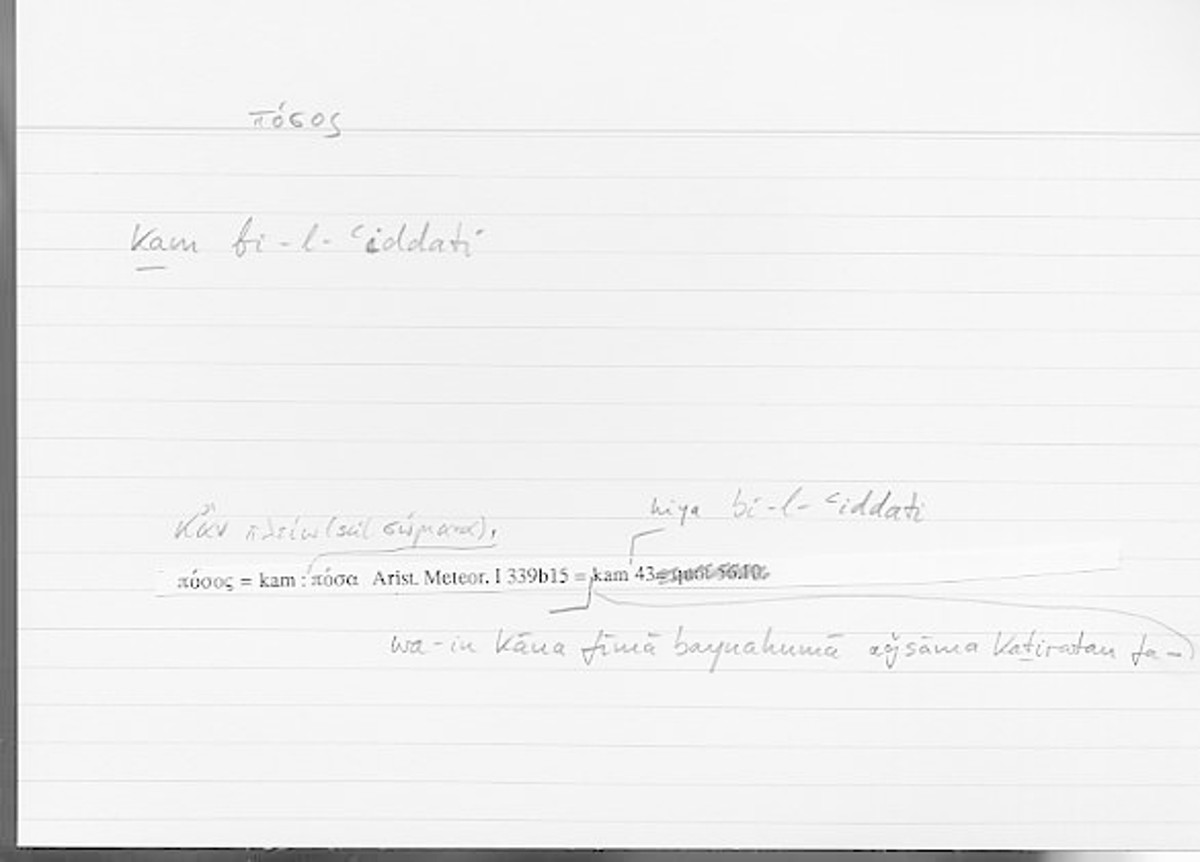 πόσος
kam bi-l-ʿiddati
κἂν πλείω (scil σώματα),
hiya bi-l-ʿiddati
πόσος = kam : πόσα Arist. Meteor. I 339b15 = kam 43
wa-in kāna fīmā baynahumā aǧsāma kaṯiratan fa-